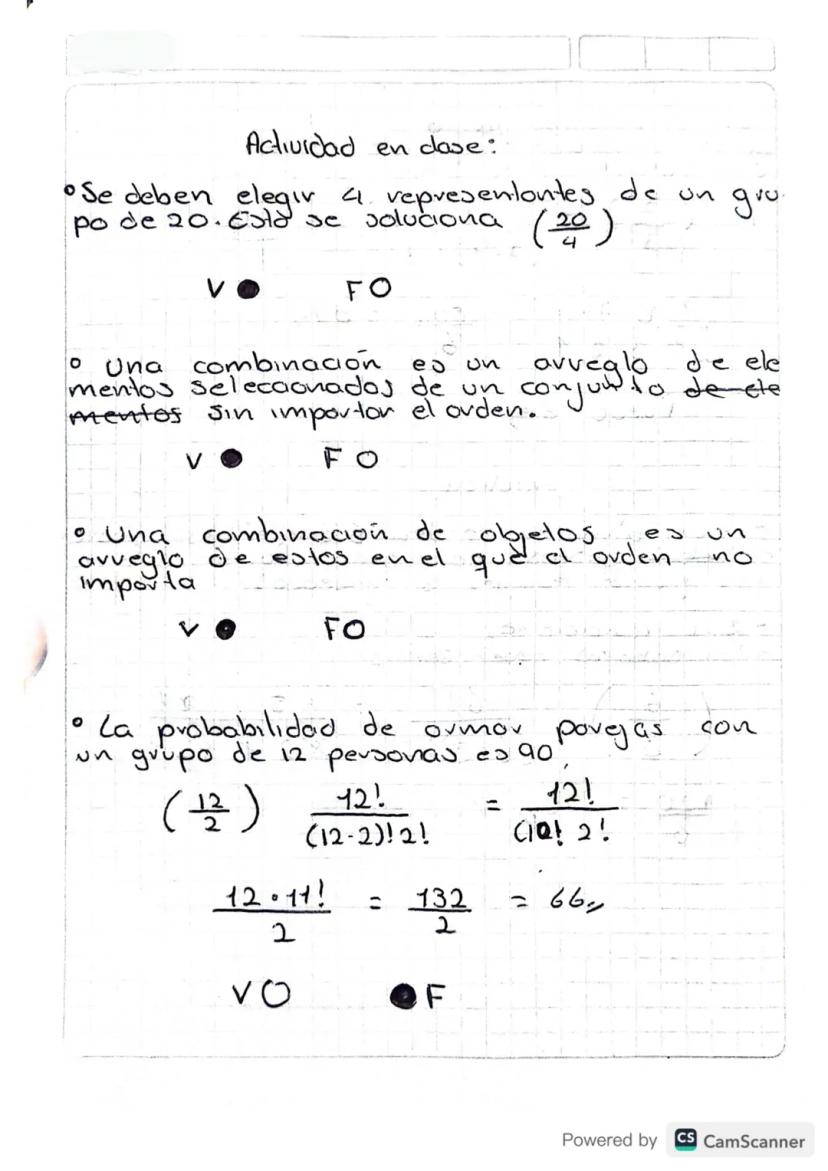 Actividad en clase:
° Se deben elegir 4 representantes de un gru
po de 20. Esto se soluciona (20/4)
V ● F O
° Una combinación es un arreglo de ele
mentos seleccionados de un conjunto de ele
mentos sin importar el orden.
V ● F O
° Una combinación de objetos es un
arreglo de estos en el que el orden no
importa
V ● F O
° La probabilidad de armar parejas con
un grupo de 12 personas es 90
(12/2) 12!/(12-2)!2! = 12!/(10! 2!
12·11!/2 = 132/2 = 66
V O ● F
Powered by CS CamScanner